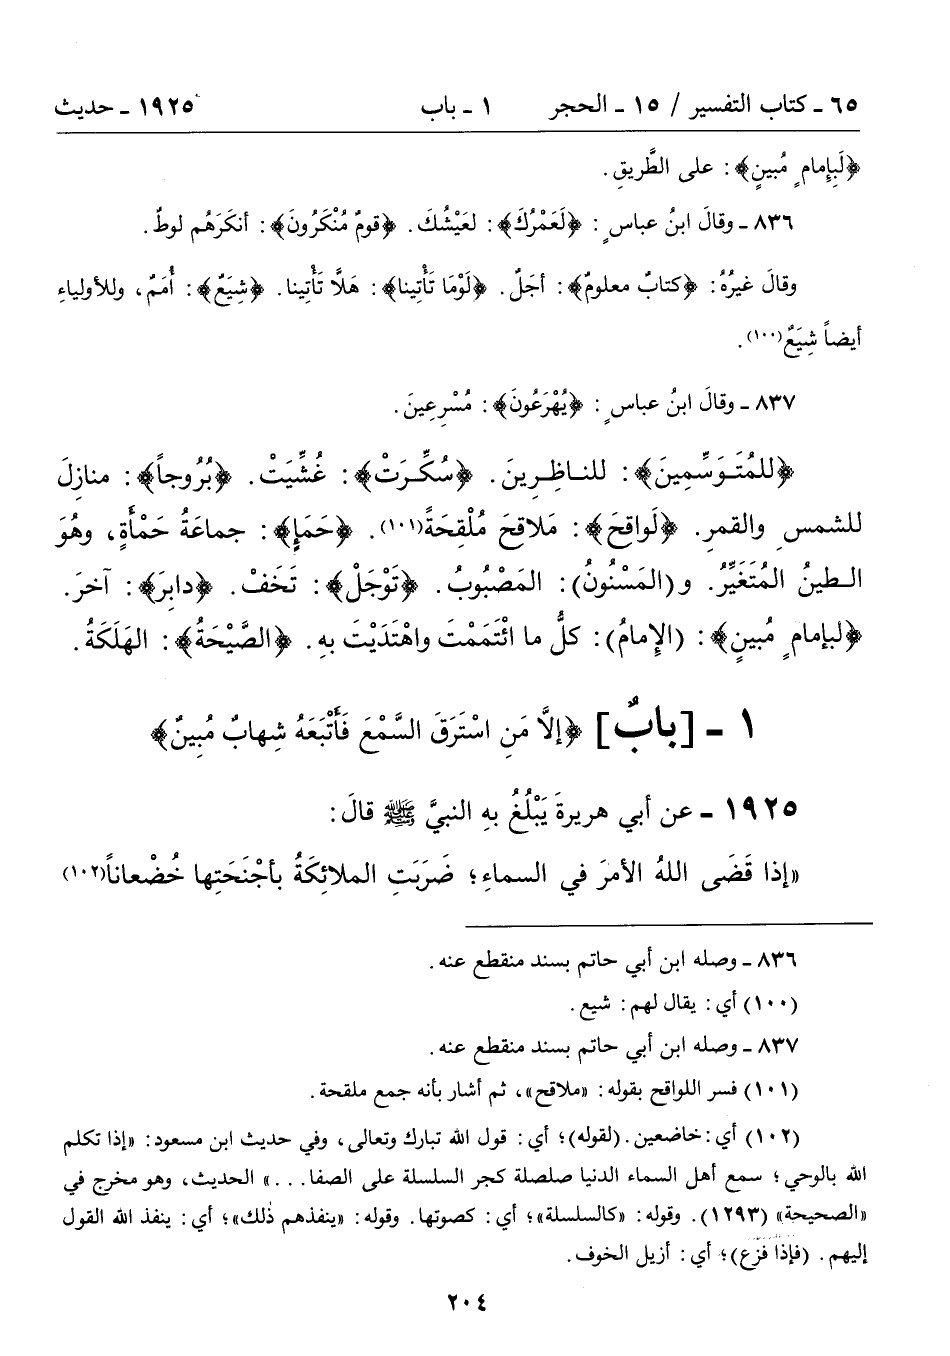 ٦٥ ـ كتاب التفسير / ١٥ ـ الحجر ١ ـ باب ١٩٢٥ ـ حديث
﴿لَبِإِمامٍ مُبينٍ﴾: على الطَّريقِ.
٨٣٦ ـ وقالَ ابنُ عباسٍ: ﴿لَعَمْرُكَ﴾: لعَيْشُكَ. ﴿قومٌ مُنْكَرُونَ﴾: أنكَرَهُم لوطٌ.
وقالَ غيرُهُ: ﴿كتابٌ معلومٌ﴾: أجَلٌ. ﴿لَوْمَا تَأْتِينا﴾: هَلاَّ تَأْتِينا. ﴿شِيَعٌ﴾: أُمَمٌ، وللأولياءِ
أيضاً شِيَعٌ(١٠٠).
٨٣٧ ـ وقالَ ابنُ عباسٍ: ﴿يُهْرَعُونَ﴾: مُسْرِعِينَ.
﴿للمُتَوَسِّمِينَ﴾: للناظِرِينَ. ﴿سُكِّرَتْ﴾: غُشِّيَتْ. ﴿بُرُوجاً﴾: منازِلَ
للشمسِ والقمرِ. ﴿لَواقِحَ﴾: مَلاقِحَ مُلْقِحَةً(١٠١). ﴿حَمَإٍ﴾: جماعَةُ حَمْأَةٍ، وهُوَ
الطينُ المُتَغَيِّرُ. و(المَسْنُونُ): المَصْبُوبُ. ﴿تَوْجَلْ﴾: تَخَفْ. ﴿دابِرَ﴾: آخرَ.
﴿لبإمامٍ مُبينٍ﴾: (الإمامُ): كلُّ ما ائْتَمَمْتَ واهْتَدَيْتَ بهِ. ﴿الصَّيْحَةُ﴾: الهَلَكَةُ.
١ ـ [بابٌ] ﴿إلاَّ مَنِ اسْتَرَقَ السَّمْعَ فَأَتْبَعَهُ شِهابٌ مُبِينٌ﴾
١٩٢٥ ـ عن أبي هريرةَ يَبْلُغُ بهِ النبيَّ ﷺ قالَ:
«إذا قَضَى اللهُ الأمرَ في السماءِ؛ ضَرَبَتِ الملائِكَةُ بأجْنَحَتِها خُضْعاناً(١٠٢)
٨٣٦ ـ وصله ابن أبي حاتم بسند منقطع عنه.
(١٠٠) أي: يقال لهم: شيع.
٨٣٧ ـ وصله ابن أبي حاتم بسند منقطع عنه.
(١٠١) فسر اللواقح بقوله: «ملاقح»، ثم أشار بأنه جمع ملقحة.
(١٠٢) أي: خاضعين. (لقوله)؛ أي: قول الله تبارك وتعالى، وفي حديث ابن مسعود: «إذا تكلم
الله بالوحي؛ سمع أهل السماء الدنيا صلصلة كجر السلسلة على الصفا...» الحديث، وهو مخرج في
«الصحيحة» (١٢٩٣). وقوله: «كالسلسلة»؛ أي: كصوتها. وقوله: «ينفذهم ذلك»؛ أي: ينفذ الله القول
إليهم. (فإذا فزع)؛ أي: أزيل الخوف.
٢٠٤